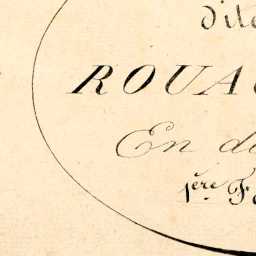 dite
ROUA
En d
1ère F